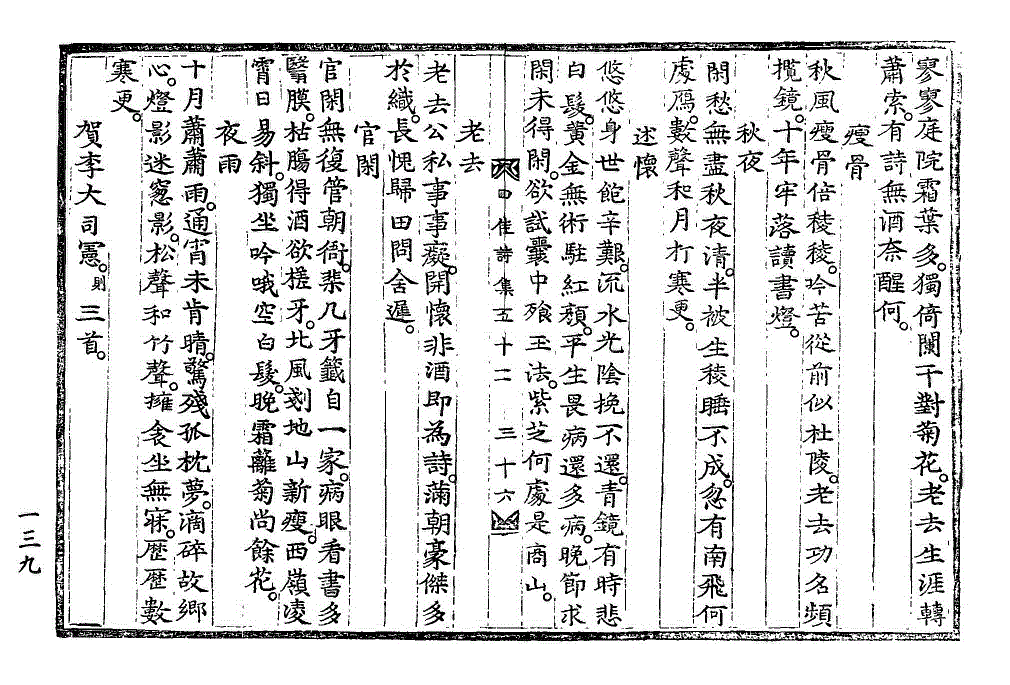 寥寥庭院霜葉多。獨倚闌干對菊花。老去生涯轉
蕭索。有詩無酒奈醒何。
瘦骨
秋風瘦骨倍稜稜。吟苦從前似杜陵。老去功名頻
攬鏡。十年牢落讀書燈。
秋夜
閑愁無盡秋夜清。半被生稜睡不成。忽有南飛何
處鴈。數聲和月打寒更。
述懷
悠悠身世飽辛艱。流水光陰挽不還。青鏡有時悲
白髮。黃金無術駐紅顏。平生畏病還多病。晚節求
閑未得閑。欲試囊中飱玉法。紫芝何處是商山。
四佳詩集五十二 三十六
老去
老去公私事事癡。開懷非酒即為詩。滿朝豪傑多
於織。長愧歸田問舍遲。
官閑
官閑無復管朝衙。棐几牙籤自一家。病眼看書多
翳膜。枯膓得酒欲搓牙。北風剗地山新瘦。西嶺凌
霄日易斜。獨坐吟哦空白髮。晚霜籬菊尚餘花。
夜雨
十月蕭蕭雨。通宵未肯晴。驚殘孤枕夢。滴碎故鄉
心。燈影迷窓影。松聲和竹聲。擁衾坐無寐。歷歷數
寒更。
賀李大司憲。則 三首。
一三九